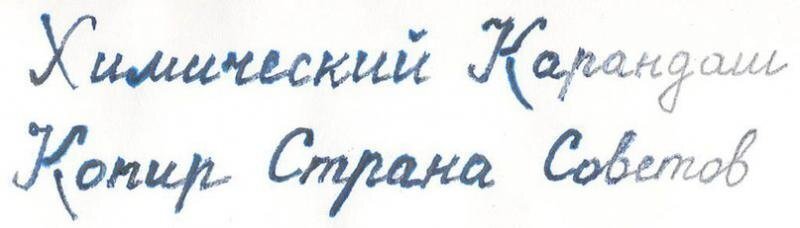 Химический Карандаш
Копир Страна Советов